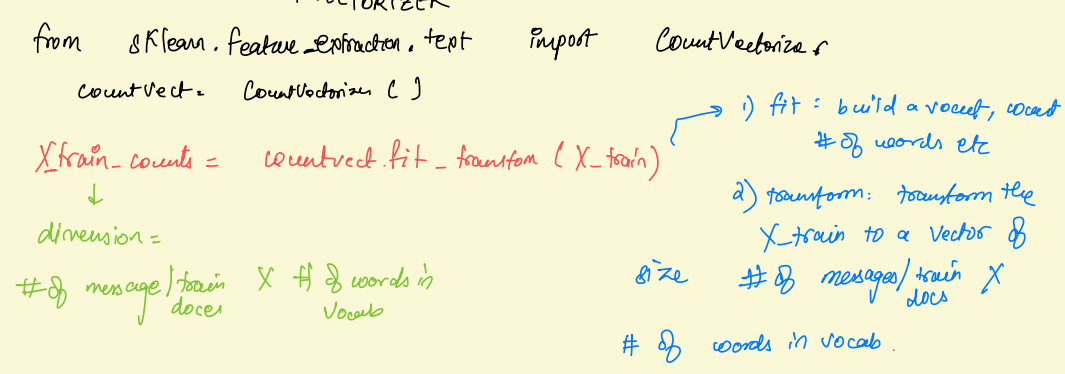 from sklearn.feature_extraction.text import CountVectorizer
countVect = CountVectorizer ( )
X_train_counts = countvect.fit_transfom ( X_train )
↓
dimension =
# of message/train docs X # of words in vocab
→ 1) fit : build a vocab, count
# of words etc
2) transform: transform the
X_train to a vector of
size # of messages/train docs X
# of words in vocab.